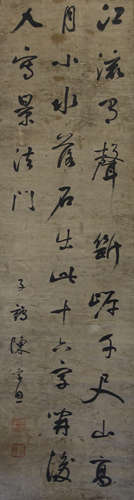 江流有聲斷岸千尺山高
月小水落石出此十六字開後
人寫景法門
子鶴陳孚恩